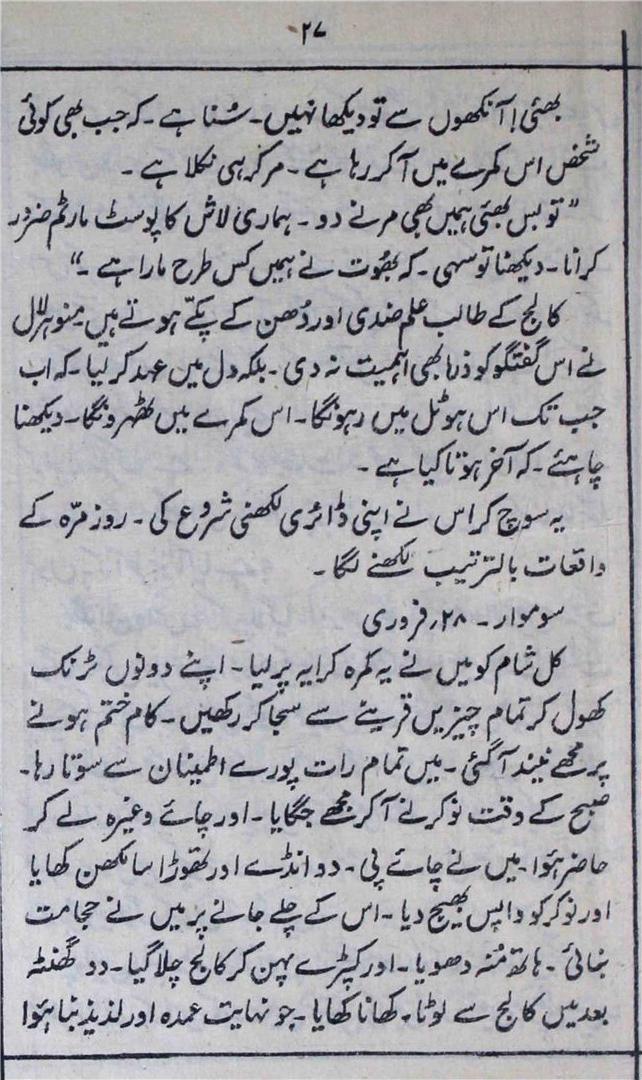 ۲۷
بھئی! آنکھوں سے تو دیکھا نہیں۔ سُنا ہے۔ کہ جب بھی کوئی
شخص اس کمرے میں آ کر رہا ہے۔ مر کر ہی نکلا ہے۔
"تو بس بھئی ہمیں بھی مرنے دو۔ ہماری لاش کا پوسٹ مارٹم ضرور
کرانا۔ دیکھنا تو سہی۔ کہ بھُوت نے ہمیں کس طرح مارا ہے۔"
کالج کے طالب علم ضدی اور دُھن کے پکّے ہوتے ہیں۔ منوہر لال
نے اس گفتگو کو ذرا بھی اہمیت نہ دی۔ بلکہ دل میں عہد کر لیا۔ کہ اب
جب تک اس ہوٹل میں رہونگا۔ اس کمرے میں ٹھہرونگا۔ دیکھنا
چاہئے۔ کہ آخر ہوتا کیا ہے۔
یہ سوچ کر اس نے اپنی ڈائری لکھنی شروع کی۔ روز مرّہ کے
واقعات بالترتیب لکھنے لگا۔
سوموار۔ ۲۸؍ فروری
کل شام کو میں نے یہ کمرہ کرایہ پر لیا۔ اپنے دونوں ٹرنک
کھول کر تمام چیزیں قرینے سے سجا کر رکھیں۔ کام ختم ہونے
پر مجھے نیند آ گئی۔ میں تمام رات پورے اطمینان سے سوتا رہا۔
صبح کے وقت نوکر نے آ کر مجھے جگایا۔ اور چائے وغیرہ لے کر
حاضر ہُوا۔ میں نے چائے پی۔ دو انڈے اور تھوڑا سا مکھن کھایا
اور نوکر کو واپس بھیج دیا۔ اس کے چلے جانے پر میں نے حجامت
بنائی۔ ہاتھ مُنہ دھویا۔ اور کپڑے پہن کر کالج چلا گیا۔ دو گھنٹہ
بعد میں کالج سے لوٹا۔ کھانا کھایا۔ جو نہایت عمدہ اور لذیذ بنا ہُوا